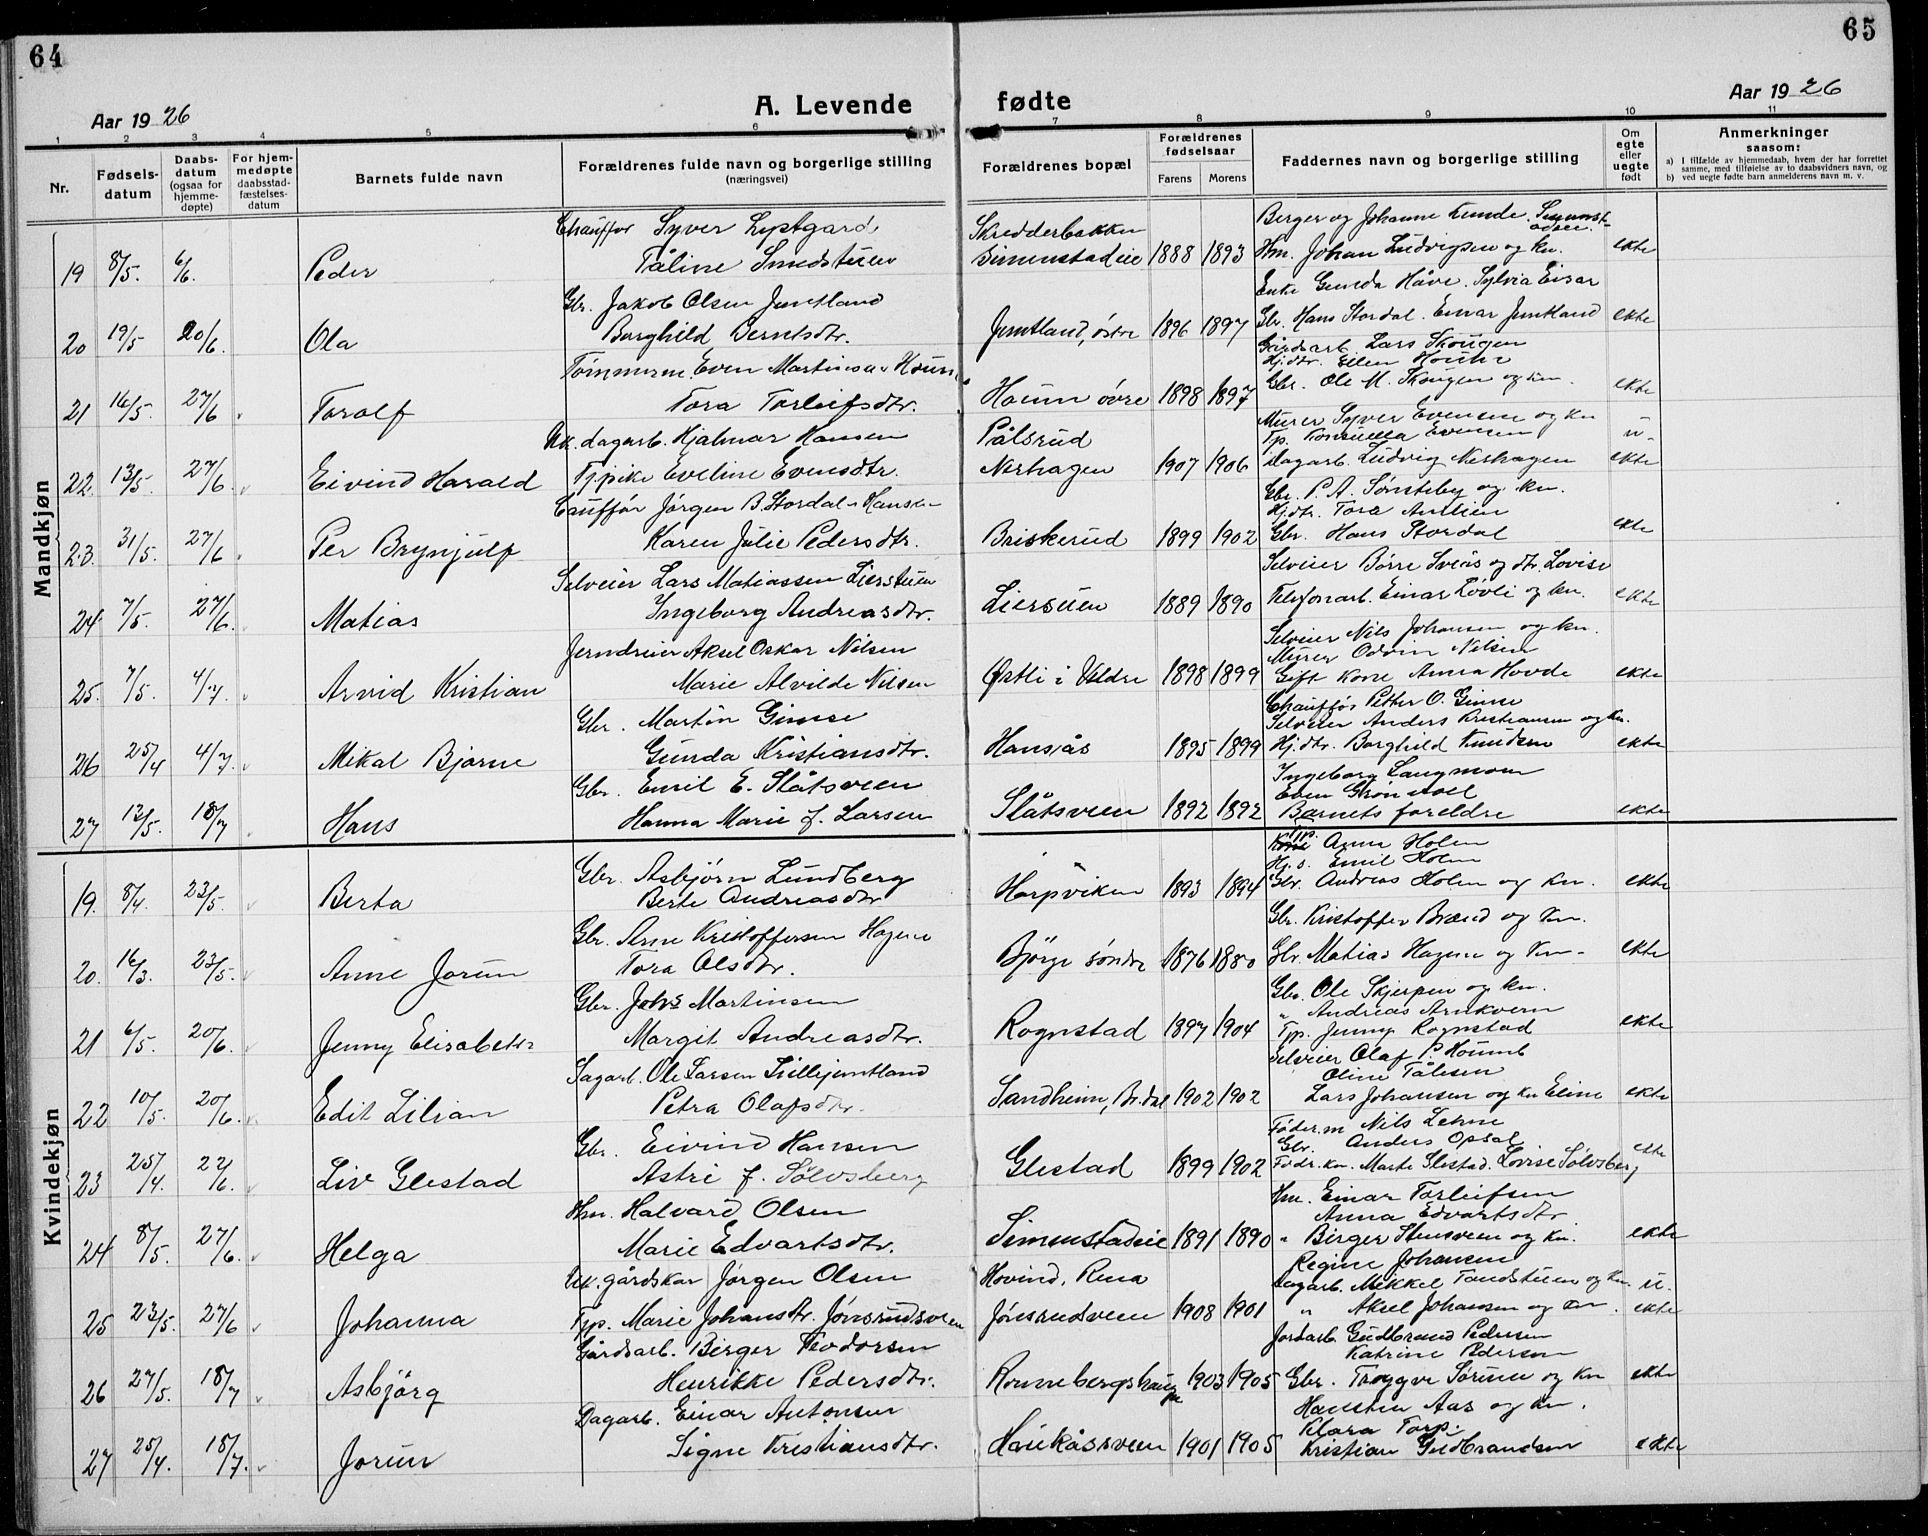 64
65
Aar 1926
A. Levende fødte
Aar 1926
1 2 3 4 5 6 7 8 9 10 11
Nr.
Fødselsdatum
Daabsdatum (ogsaa for hjemmedøpte)
For hjemmedøpte daabsstadfæstelsesdatum
Barnets fulde navn
Forældrenes fulde navn og borgerlige stilling (næringsvei)
Forældrenes bopæl
Forældrenes fødselsaar
Farens Morens
Faddernes navn og borgerlige stilling
Om egte eller uegte født
Anmerkninger saasom:
a) I tilfælde av hjemmedaab, hvem der har forrettet samme, med tilføielse av to daabsvidners navn, og
b) ved uegte fødte barn anmelderens navn m. v.
Mandkjøn
Chauffør Syver Lystgard, Skredderbakken Berger og Johanne Kunde, Simenstadeie.
19 8/5. 6/6. Peder Tåline Smedstuen Simenstadeie 1888 1893 Hm. Johan Ludvigsen og kn. ekte
Gbr. Jakob Olsen Jemtland Enke Gunda Håve. Sylvia Eisar
20 19/5 20/6. Ola Borghild Berntsdtr. Jemtland, østre 1896 1897 Gbr. Hans Stordal. Einar Jemtland ekte
Gårdsarb. Lars Skougen
Hj.dtr. Ellen
Tømmerm. Even Martinsen Houm
21 16/5. 27/6 Torolf Tora Torleifsdtr. Houm øvre 1898 1897 Gbr. Ole M. Skougen og kn. ekte
Uk. dagarb. Hjalmar Hansen Pålsrud Murer Syver Evensen og kn
Tp. Evensen u-
22. 13/5. 27/6 Eivind Harald Tjpike Eveline Evensdtr. Nerhagen 1907 1906 Dagarb. Ludvig Nerhagen ekte
Cauffør Jørgen B. Stordal Hansen Gbr. P. A. Sønsteby og kn.
Hj.dtr. Tora
23. 31/5. 27/6 Per Brynjulf Karen Julie Pedersdtr. Briskerud 1899 1902 Gbr. Hans Stordal ekte
Selveier Lars Matiassen Lierstuen Selveier Børre Sveås og dtr. Lovise
24 7/5. 27/6. Matias Ingeborg Andreasdtr. Lierstuen 1889 1890 Telefonarb. Einar Løvli og kn. ekte
Jerndreier Aksel Oskar Nilsen Selveier Nils Johansen og kn.
Murer Odvin Nilsen
25. 7/5. 4/7. Arvid Kristian Marie Alvilde Nilsen Østli i Veldre 1898 1899 Gift kone Anna Hovde ekte
Gbr. Martin Gimse Chauffør Petter O. Gimse
Selveier Anders Kristiansen og kn.
26 25/4 4/7. Mikal Bjarne Gunda Kristiansdtr. Hansås 1895 1899 Hj.dtr. Borghild Knudsen ekte
Gbr. Emil E. Slåtsveen Ingeborg Langmoen
Even Grønvoll
27 13/5. 18/7 Hans Hanna Marie f. Larsen Slåtsveen 1892 1892 Barnets foreldre ekte
Kvindekjøn
Tjp. Anna Holen
Gbr. Asbjørn Lundberg Hj.s. Emil Holen
19. 8/4. 23/5. Berta Berte Andreasdtr Harpviken 1893 1894 Gbr. Andreas Holen og kn. ekte
Gbr. Arne Kristoffersen Hagene Gbr. Kristoffer Brænd og kn.
20. 16/3. 23/5. Anne Jorun Tora Olsdtr. Bjørge søndre 1876 1880 Gbr. Matias Hagene og kn- ekte
Gbr. Johs Martinsen Gbr. Ole Skjerpen og kn.
" Andreas Arnkvern
21 6/5. 20/6. Jenny Elisabeth Margit Andreasdtr. Rognstad 1897 1904 Tjp. Jenny Rognstad ekte
Sagarb. Ole Larsen Lillejemtland Selveier Olaf P. Houmb
Oline Tålesen
22 10/5. 20/6. Edit Lilian Petra Olafsdtr. Sandheim, Br.dal 1902 1902 Lars Johansen og kn Eline ekte
Gbr. Eivind Hansen Føder.m Nils Lehne
Gbr. Anders Opsal
23 25/4. 22/6. Liv Glestad Astri f. Sølvsberg Glestad 1899 1902 Fødr.kn. Marte Glestad. Lovise Sølvsberg ekte
Hm. Halvard Olsen Hm. Einar Torleifsen
Anna Edvartsdtr
24 8/5. 27/6. Helga Marie Edvartsdtr. Simenstadeie 1891 1890 " Birger Stensveen og kn. ekte
Uk. gårdskar Jørgen Olsen Hovind, Rena Regine Johansen
Dagarb. Mikkel Tandstuen og kn. u.
25 23/5. 27/6 Johanna Tjp. Marie Johansdtr. Jønsrudsveen Jønsrudsveen 1908 1901 " Aksel Johansen og kn. ekte
Gårdsarb. Birger Teodorsen Jordarb. Gudbrand Pedersen
Katrine Pedersen
26 27/5. 18/7 Asbjörg Henrikke Pedersdtr. Ronnebergshaugen 1903 1905 Gbr. Trygve Sørum og kn ekte
Dagarb. Einar Antonsen Hansten Aas og kn.
Klara Torp.
27 25/4. 18/7. Jorun Signe Kristiansdtr. Haukåsveen 1901 1905 Kristian Gudbrandsen ekte